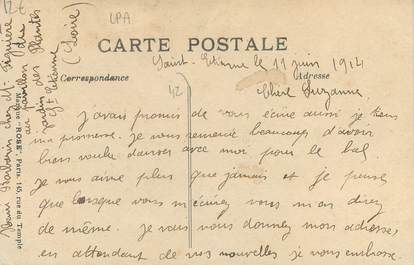 12 €
LPA
CARTE POSTALE
Correspondance
Adresse
Saint-Etienne le 11 juin 1914
(42)
Chère Suzanne
j'avais promis de vous écrire aussi je tiens
ma promesse. Je vous remercie beaucoup d'avoir
bien voulu danser avec moi pour le bal
Je vous aime plus que jamais et je pense
que lorsque vous m'écrirez vous m'en direz
de même. Je vais vous donner mon adresse,
en attendant de vos nouvelles je vous embrasse.
chez M. Figuière
au pavillon du
Jardin des Plantes
St Etienne
(Loire)
Marque "ROSE", Paris. 145, rue du Temple